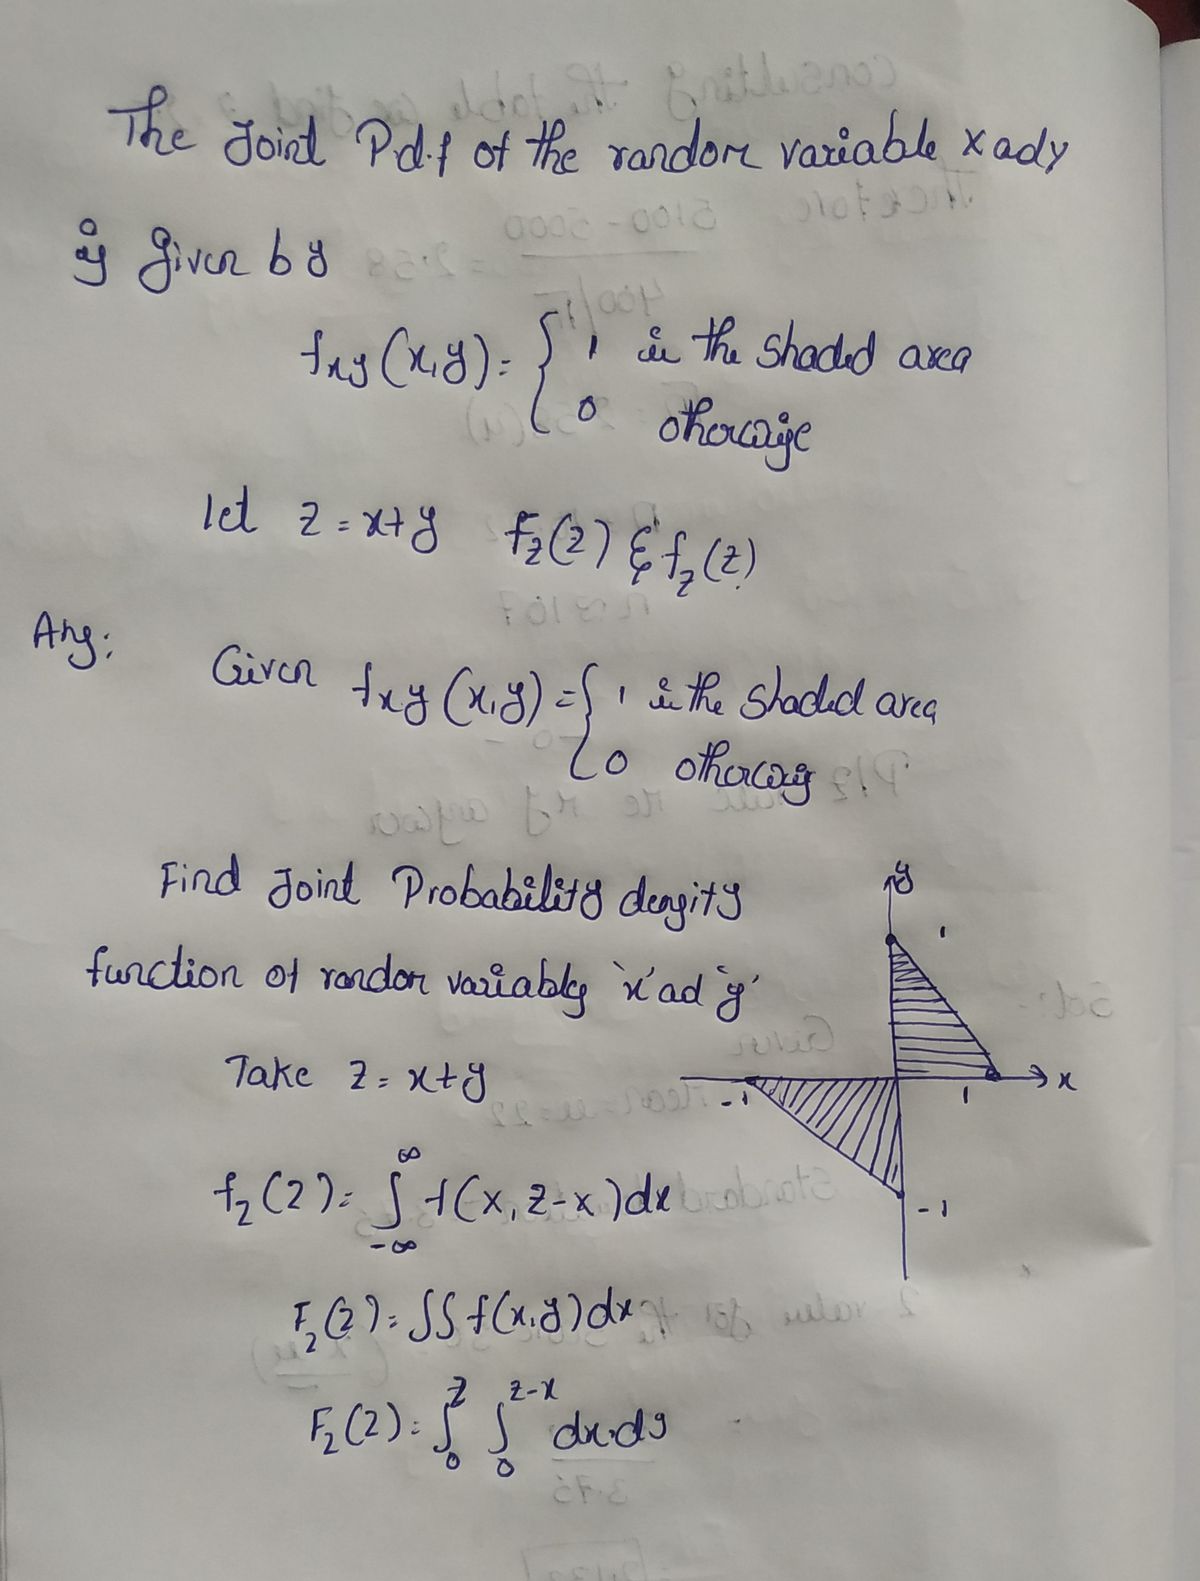 The Joint P.d.f of the random variable x ad y
is Given by
fxy (x,y) = { 1 in the shaded area
0 otherwise
let z = x+y Fz(z) & fz(z)
Ans:
Given fxy (x,y) = { 1 in the shaded area
0 otherwise
Find Joint Probability density
function of random variables 'x' ad 'y'
Take z = x+y
fz(z) = ∫ f(x, z-x)dx
∞
-∞
Fz(z) = ∫∫ f(x,y)dx
Fz(z) = ∫ ∫ dx.dy
z z-x
0 0
y
1
x
1
-1
-1